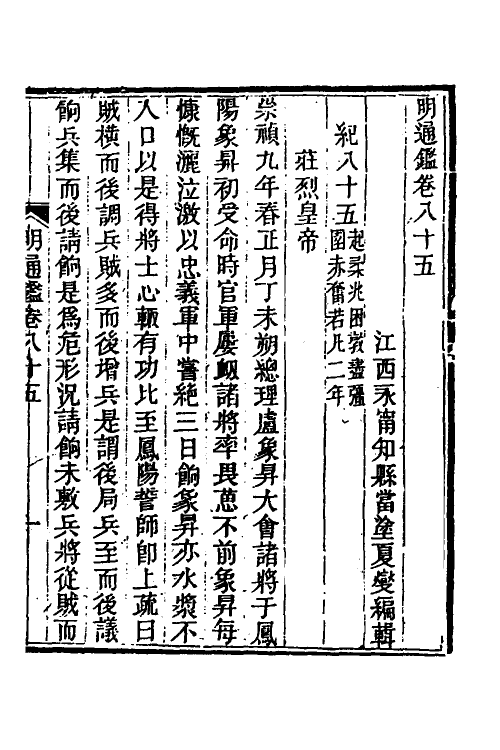 明通鑑卷八十五
江西永甯知縣當塗夏燮編輯
紀八十五起柔兆困敦盡彊
圉赤奮若凡二年
莊烈皇帝
崇禎九年春正月丁未朔總理盧象昇大會諸將于鳳
陽象昇初受命時官軍屢衂諸將率畏葸不前象昇每
慷慨灑泣激以忠義軍中嘗絶三日餉象昇亦水漿不
入口以是得將士心輒有功比至鳳陽誓師卽上疏曰
賊横而後調兵賊多而後增兵是謂後局兵至而後議
餉兵集而後請餉是爲危形況請餉未敷兵將從賊而
明通鑑卷八十五
一